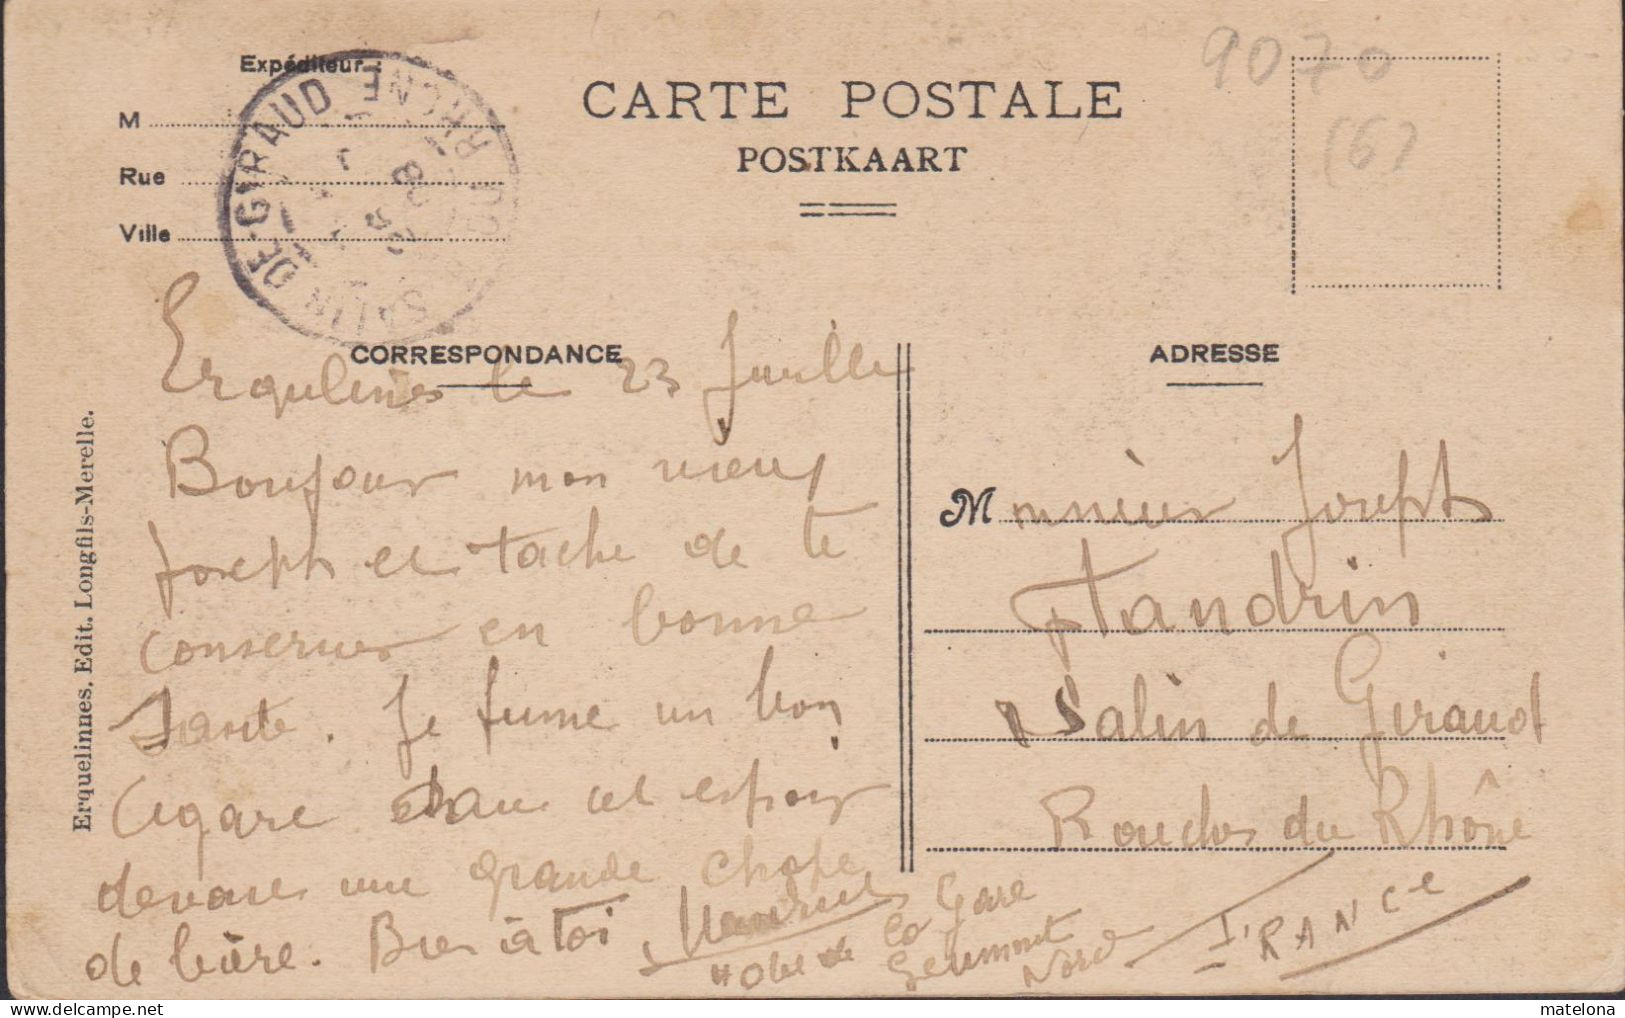 Expéditeur :
M
Rue
Ville
SALIN DE-GIRAUD
CARTE POSTALE
POSTKAART
9070
(6)
CORRESPONDANCE
ADRESSE
Erquelinnes. Edit. Longfils-Merelle.
Erquelines le 23 Juille
Bonjour mon vieux
Joseph et tache de te
conserver en bonne
sante. Je fume un bon
Cigare dans cet espoir
devant une grande chope
de bière. Bien à toi
Hotel de la Gare
Jeumont
Nord
Monsieur Joseph
Salin de Giraud
Bouches du Rhône
FRANCe
matelona